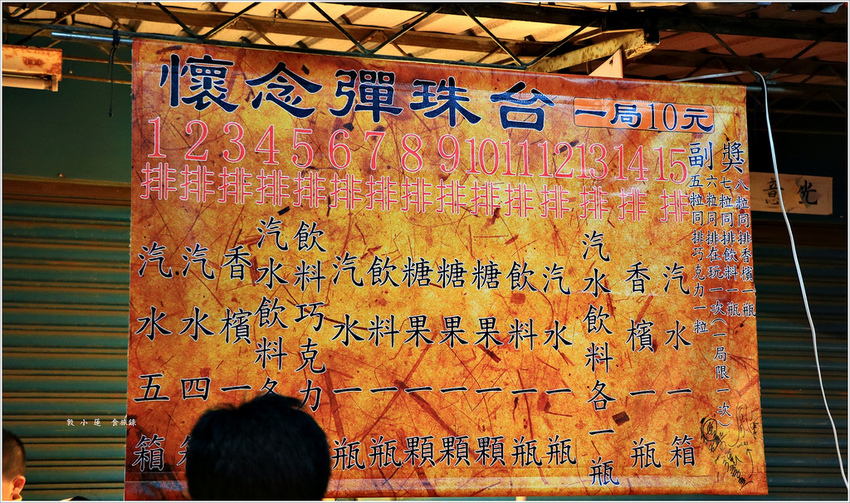 懷念彈珠台 一局10元
1 2 3 4 5 6 7 8 9 10 11 12 13 14 15
排 排 排 排 排 排 排 排 排 排 排 排 排 排 排
汽水五箱
汽水四
香檳一
汽水飲料各
飲料巧克力
汽水一瓶
飲料一瓶
糖果一顆
糖果一顆
糖果一顆
飲料一瓶
汽水一瓶
汽水飲料各一瓶
香檳一瓶
汽水一箱
副獎
八粒同排香檳一瓶
七粒同排飲料一瓶
六粒同排在玩一次(一局限一次)
五粒同排巧克力一粒